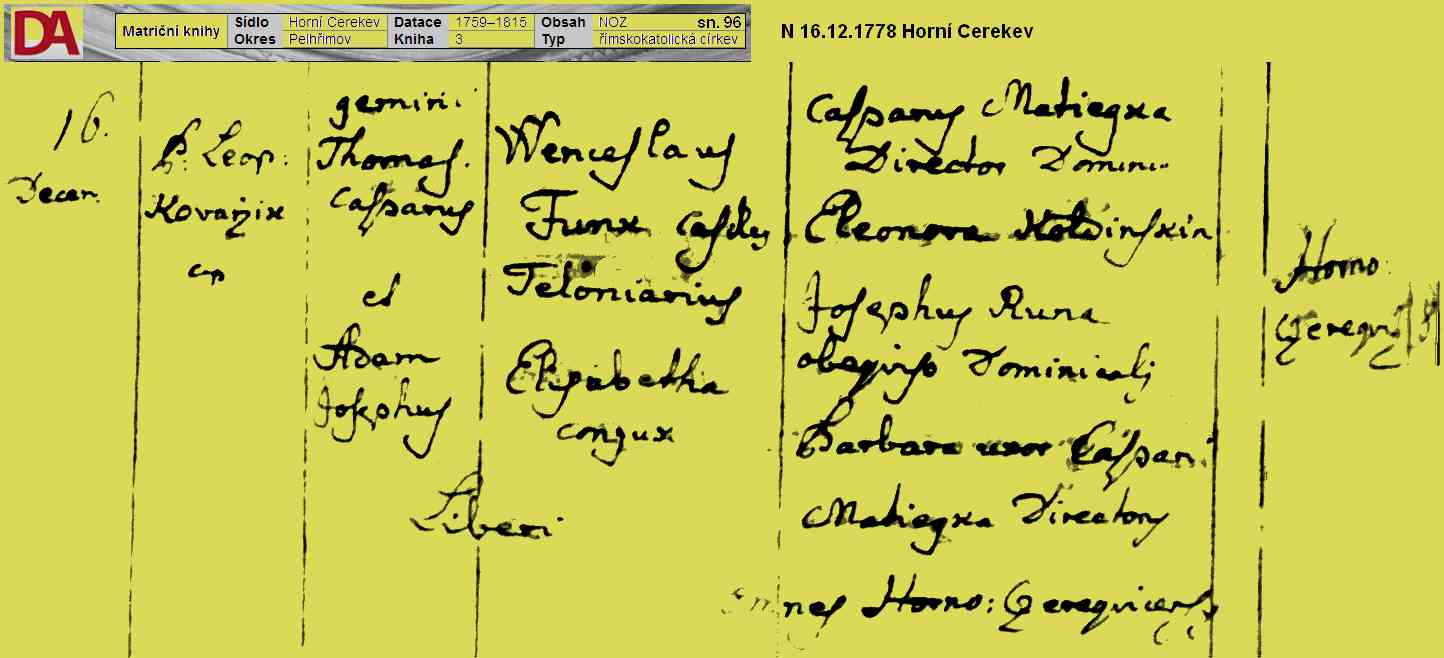 DA
Matriční knihy
Sídlo Horní Cerekev Datace 1759–1815 Obsah NOZ sn. 96
Okres Pelhřimov Kniha 3 Typ římskokatolická církev
N 16.12.1778 Horní Cerekev
16.
Decem.
P: Leop:
Kovaržik
gemini
Thomas.
Casparus
et
Adam
Josephus
Liberi
Wenceslaus
Funk
Teloniarius
Elisabetha
conjux
Casparus Matiegka
Director Domini
Eleonora
Josephus Kuna
Dominicalis
Barbara uxor Caspari
Matiegka Directoris
Omnes Horno:
Horno